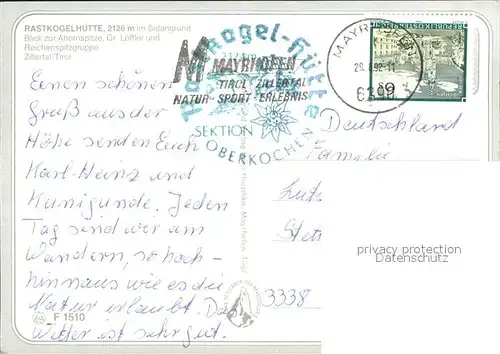 RASTKOGELHÜTTE, 2126 m im Sidangrund
Blick zur Ahornspitze, Gr. Löffler und
Reichenspitzgruppe
Zillertal/Tirol
Einen schönen
Gruß aus der
Höhe senden Euch
Karl-Heinz und
Kunigunde. Jeden
Tag sind wir am
Wandern, so hoch-
hinaus wie es die
Natur erlaubt. Das
Wetter ist sehr gut.
F 1510
Rastkogel-Hütte
SEKTION
OBERKOCHEN
MAYRHOFEN
TIROL - ZILLERTAL
NATUR - SPORT - ERLEBNIS
6290
REPUBLIK ÖSTERREICH
Deutschland
Familie
3338
privacy protection
Datenschutz